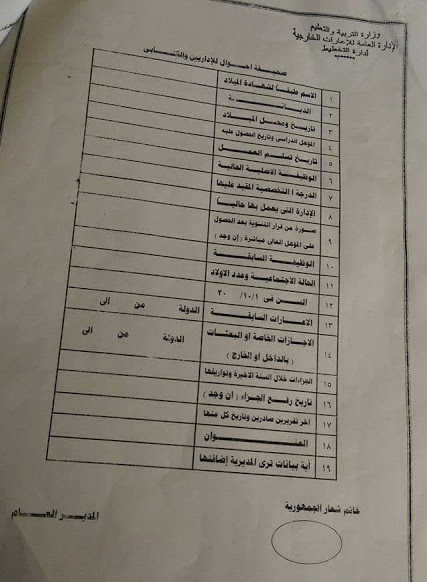 وزارة التربية والتعليم
الإدارة العامة للإعارات الخارجية
إدارة التخطيط
صحيفة احوال للإداريين والفنيين
١ الاسم طبقاً لشهادة الميلاد
٢ الديانة
٣ تاريخ ومحل الميلاد
٤ المؤهل الدراسى وتاريخ الحصول عليه
٥ تاريخ تسلم العمل
٦ الوظيفة الاصلية الحالية
٧ الدرجة التخصصية المقيد عليها
٨ الإدارة التى يعمل بها حالياً
٩ صورة من قرار التسوية بعد الحصول
على المؤهل العالى مباشرة ( إن وجد )
١٠ الوظيفة السابقة
١١ الحالة الاجتماعية وعدد الاولاد
١٢ السن فى ١٠/١/ ٢٠
١٣ الاعارات السابقة الدولة من الى
١٤ الاجازات الخاصة او البعثات الدولة من الى
( بالداخل او الخارج )
١٥ الجزاءات خلال السنة الاخيرة وتواريخها
١٦ تاريخ رفع الجزاء ( ان وجد )
١٧ اخر تقريرين صادرين وتاريخ كل منها
١٨ العنوان
١٩ أية بيانات ترى المديرية إضافتها
خاتم شعار الجمهورية
المدير العام